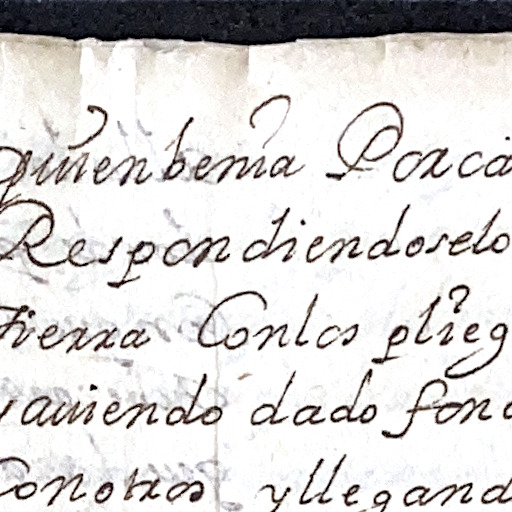 quien benia Por ca
Respondiendoselo
tierra Conlos plieg
yauiendo dado fon
Conotros yllegand